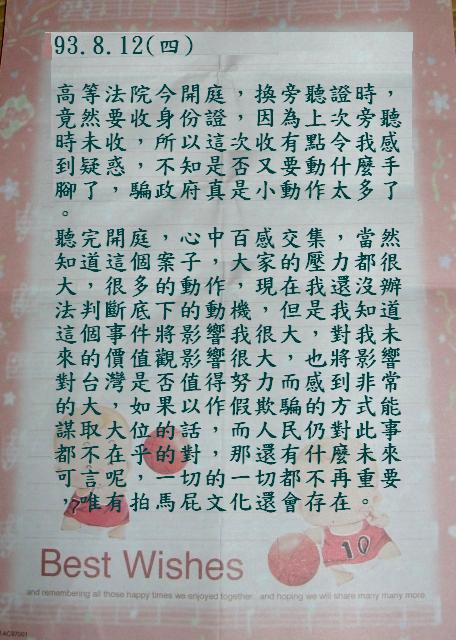 93.8.12(四)
高等法院今開庭，換旁聽證時，
竟然要收身份證，因為上次旁聽
時未收，所以這次收有點令我感
到疑惑，不知是否又要動什麼手
腳了，騙政府真是小動作太多了
。
聽完開庭，心中百感交集，當然
知道這個案子，大家的壓力都很
大，很多的動作，現在我還沒辦
法判斷底下的動機，但是我知道
這個事件將影響我很大，對我未
來的價值觀影響很大，也將影響
對台灣是否值得努力而感到非常
的大，如果以作假欺騙的方式能
謀取大位的話，而人民仍對此事
都不在乎的對，那還有什麼未來
可言呢，一切的一切都不再重要
，唯有拍馬屁文化還會存在。
10
Best Wishes
and remembering all those happy times we enjoyed together and hoping we will share many many more